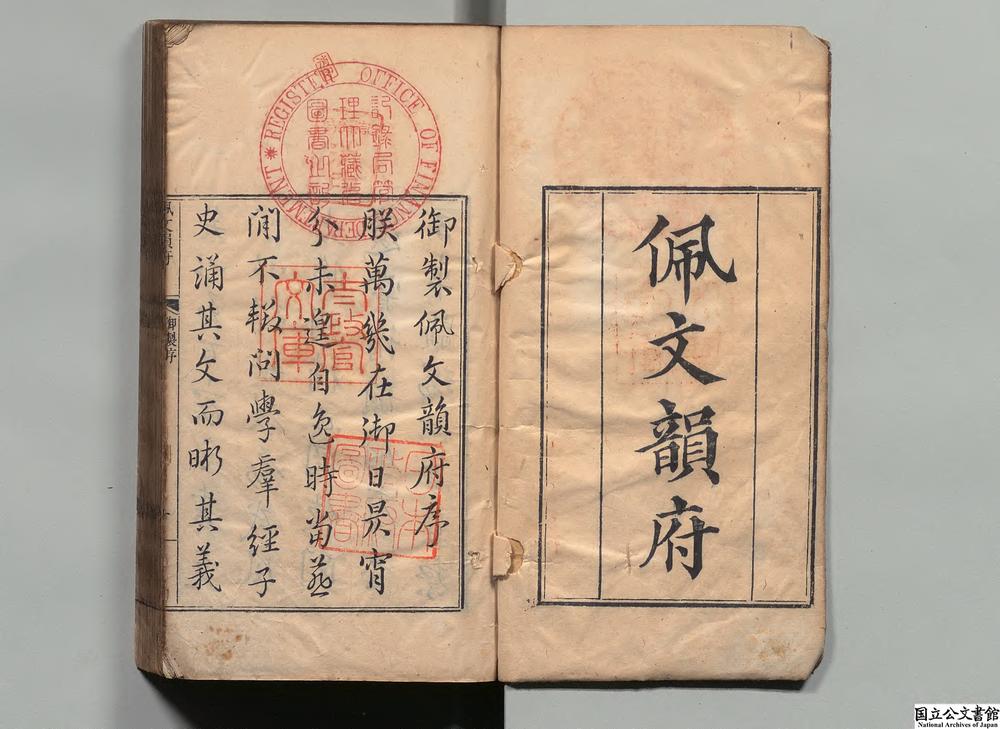 佩文韻府
御製佩文韻府序
朕萬幾在御日昃宵
分未遑自逸時當燕
閒不輟問學羣經子
史誦其文而晰其義
御製序
REGISTER OFFICE OF FINANCE DEPARTMENT
太政官
文庫
日本
政府
圖書
国立公文書館
National Archives of Japan